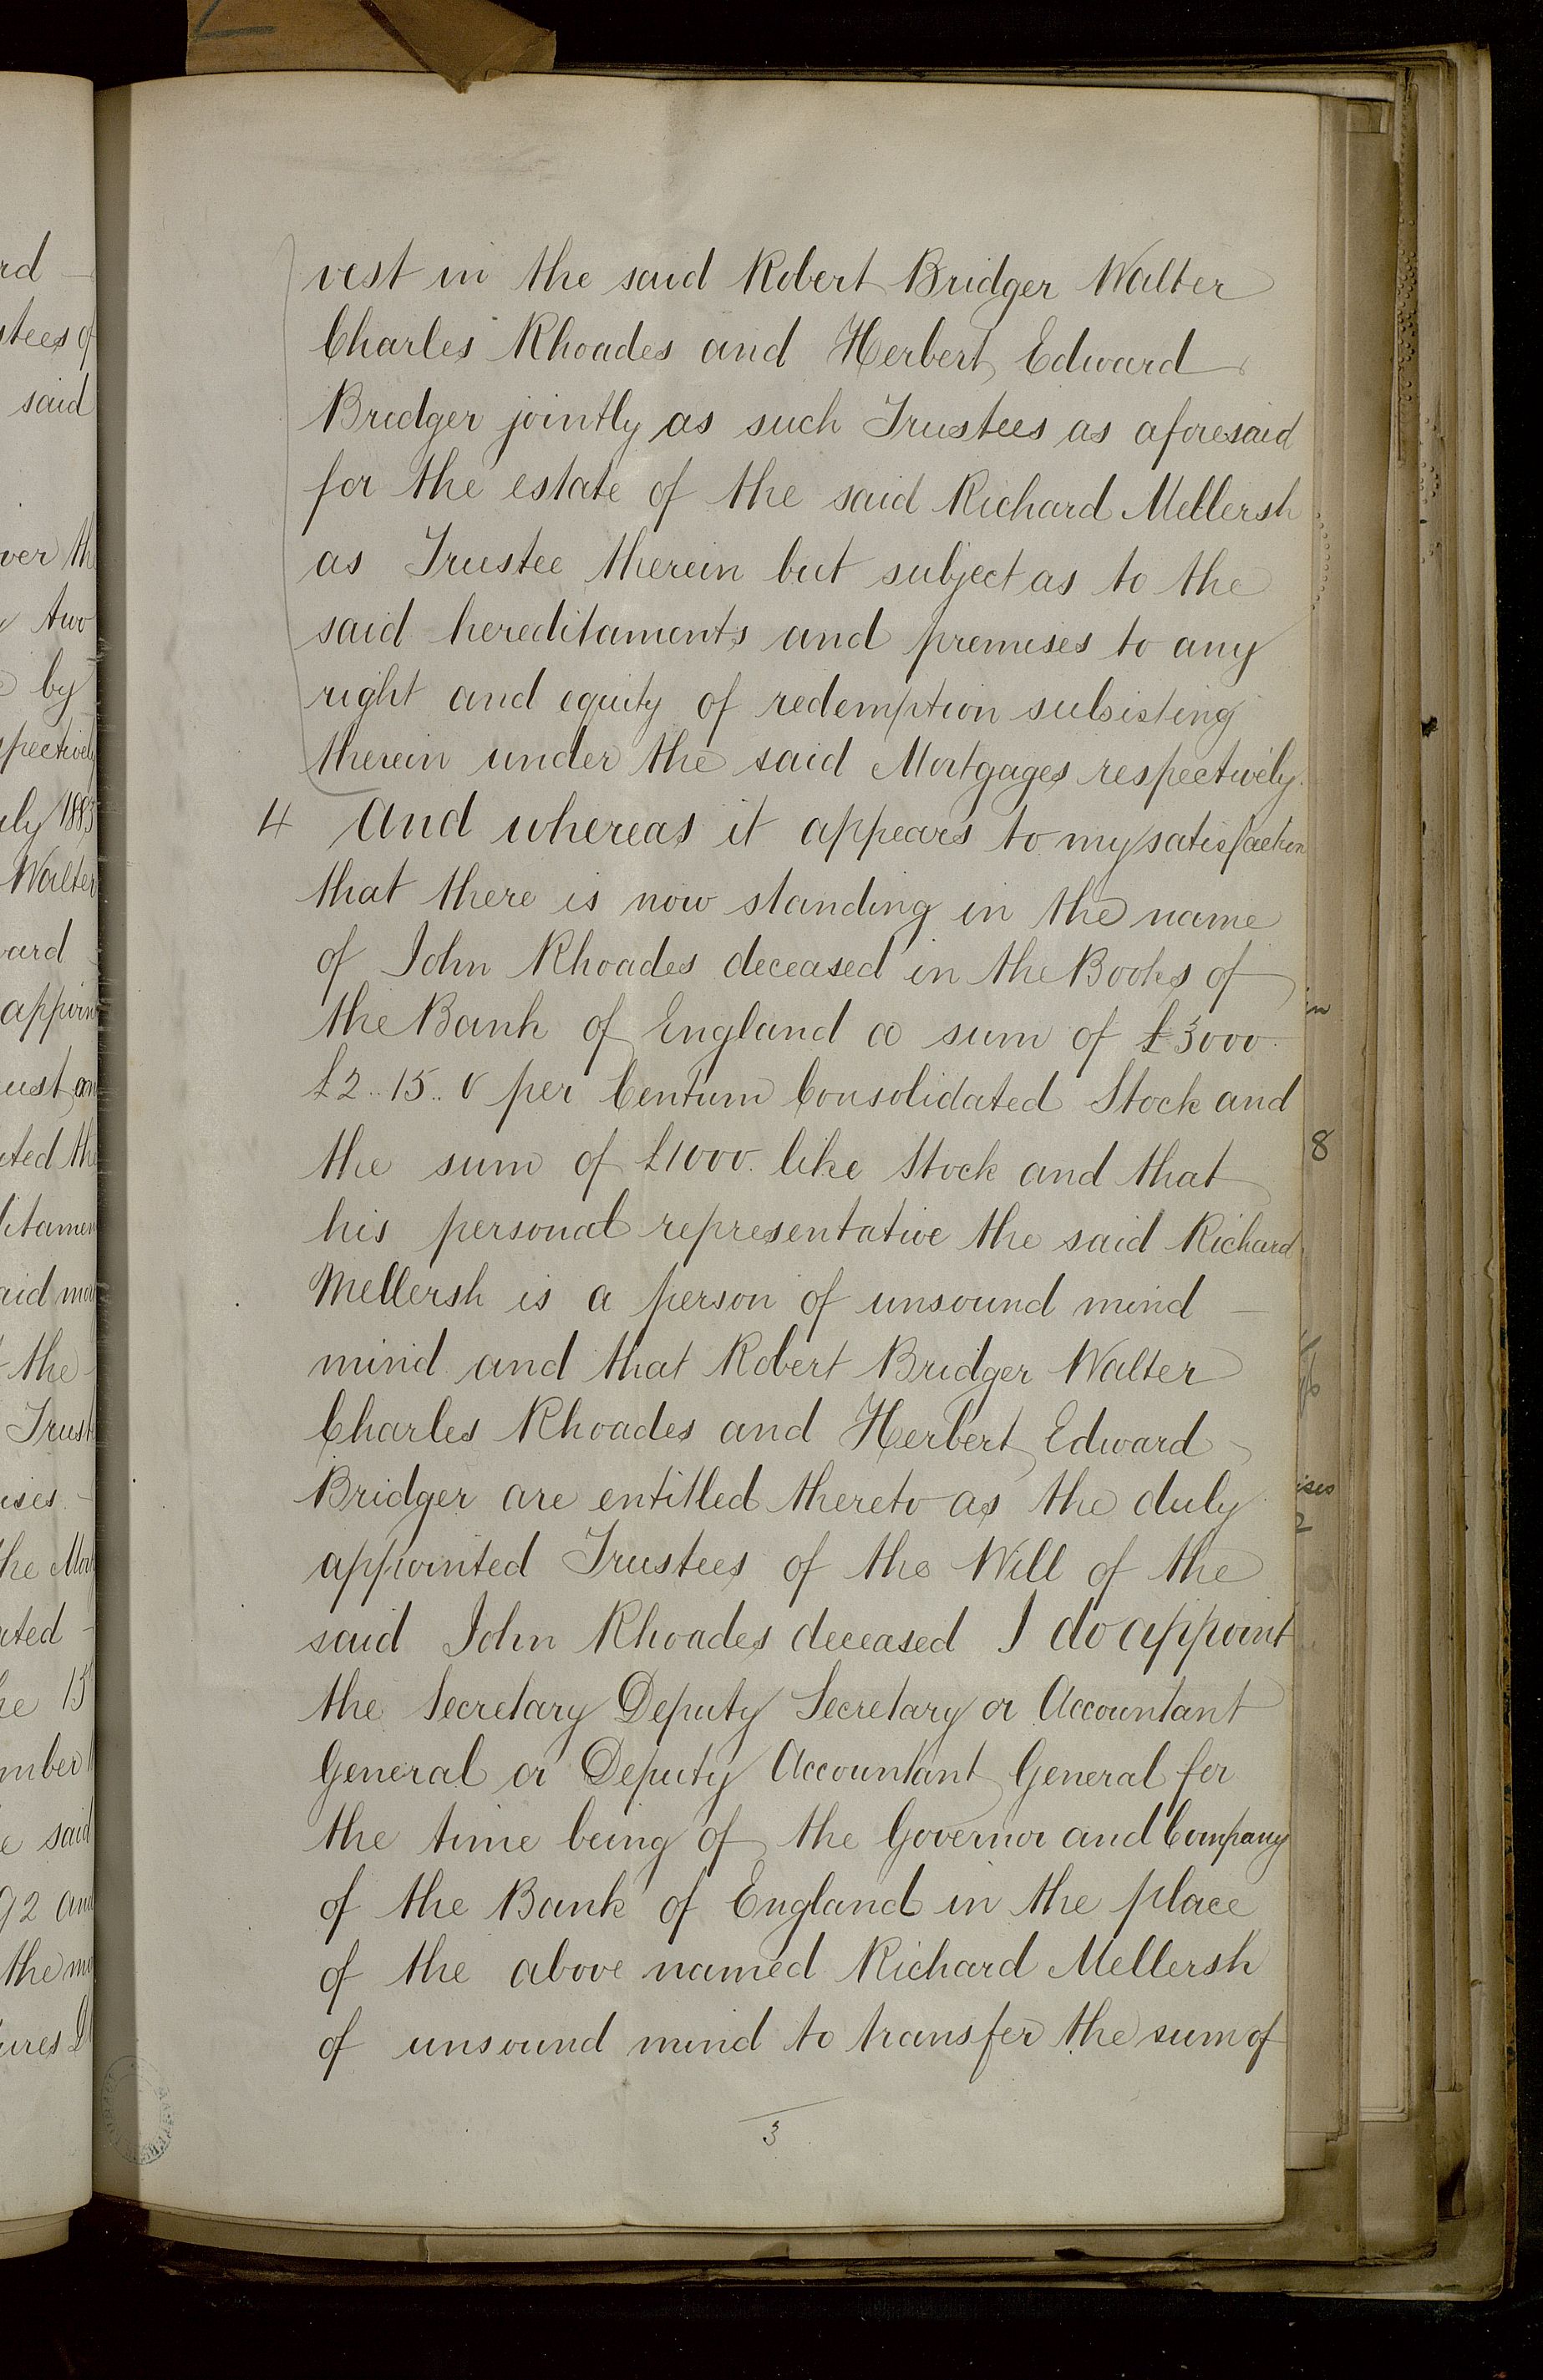 vest in the said Robert Bridger Walter
Charles Rhoades and Herbert Edward
Bridger jointly as such Trustees as aforesaid
for the estate of the said Richard Mellersh
as Trustee therein but subject as to the
said hereditaments and premises to any
right and equity of redemption subsisting
therein under the said Mortgages respectively.
4 And whereas it appears to my satisfaction
that there is now standing in the name
of John Rhoades deceased in the Books of
the Bank of England a sum of £3000
£2..15..0 per Centum Consolidated Stock and
the sum of £1000. like Stock and that
his personal representative the said Richard
Mellersh is a person of unsound mind —
mind and that Robert Bridger Walter
Charles Rhoades and Herbert Edward
Bridger are entitled thereto as the duly
appointed Trustees of the Will of the
said John Rhoades deceased I do appoint
the Secretary Deputy Secretary or Accountant
General or Deputy Accountant General for
the time being of the Governor and Company
of the Bank of England in the place
of the above named Richard Mellersh
of unsound mind to transfer the sum of
3